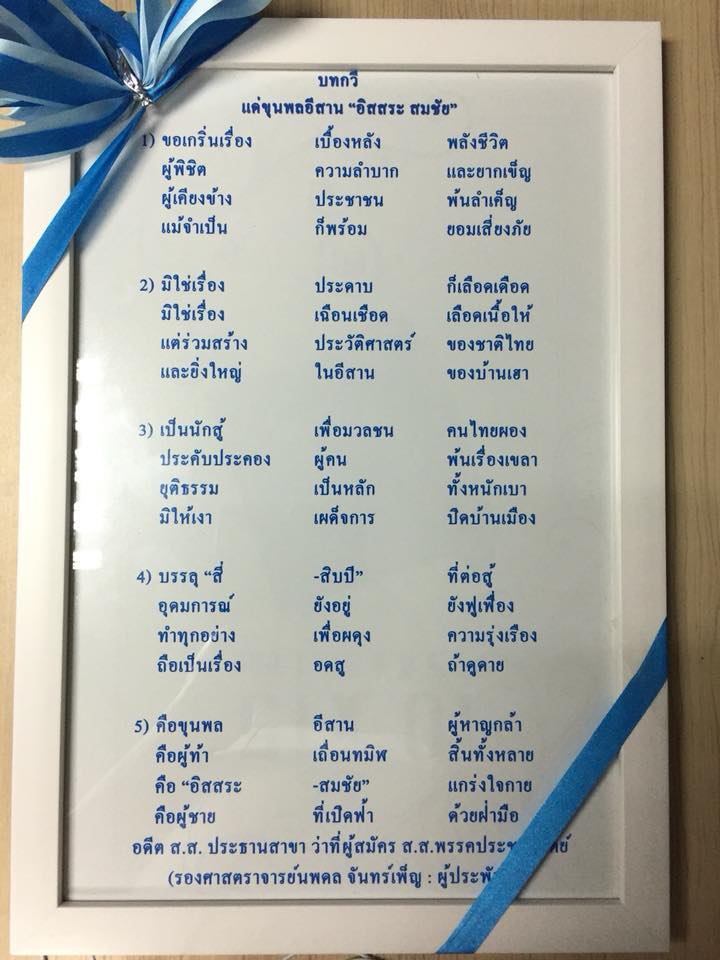 บทกวี
แด่ขุนพลอีสาน “อิสสระ สมชัย”
1) ขอเกริ่นเรื่อง เบื้องหลัง พลังชีวิต
ผู้พิชิต ความลำบาก และยากเข็ญ
ผู้เคียงข้าง ประชาชน พ้นลำเค็ญ
แม้จำเป็น ก็พร้อม ยอมเสี่ยงภัย
2) มิใช่เรื่อง ประดาบ ก็เลือดเดือด
มิใช่เรื่อง เฉือนเชือด เลือดเนื้อให้
แต่ร่วมสร้าง ประวัติศาสตร์ ของชาติไทย
และยิ่งใหญ่ ในอีสาน ของบ้านเฮา
3) เป็นนักสู้ เพื่อมวลชน คนไทยผอง
ประคับประคอง ผู้คน พ้นเรื่องเขลา
ยุติธรรม เป็นหลัก ทั้งหนักเบา
มิให้เงา เผด็จการ ปิดบ้านเมือง
4) บรรลุ “สี่ -สิบปี” ที่ต่อสู้
อุดมการณ์ ยังอยู่ ยังฟูเฟื่อง
ทำทุกอย่าง เพื่อผดุง ความรุ่งเรือง
ถือเป็นเรื่อง อดสู ถ้าดูดาย
5) คือขุนพล อีสาน ผู้หาญกล้า
คือผู้ท้า เถื่อนทมิฬ สิ้นทั้งหลาย
คือ “อิสสระ -สมชัย” แกร่งใจกาย
คือผู้ชาย ที่เปิดฟ้า ด้วยฝ่ามือ
อดีต ส.ส. ประธานสาขา ว่าที่ผู้สมัคร ส.ส.พรรค
(รองศาสตราจารย์นพดล จันทร์เพ็ญ :